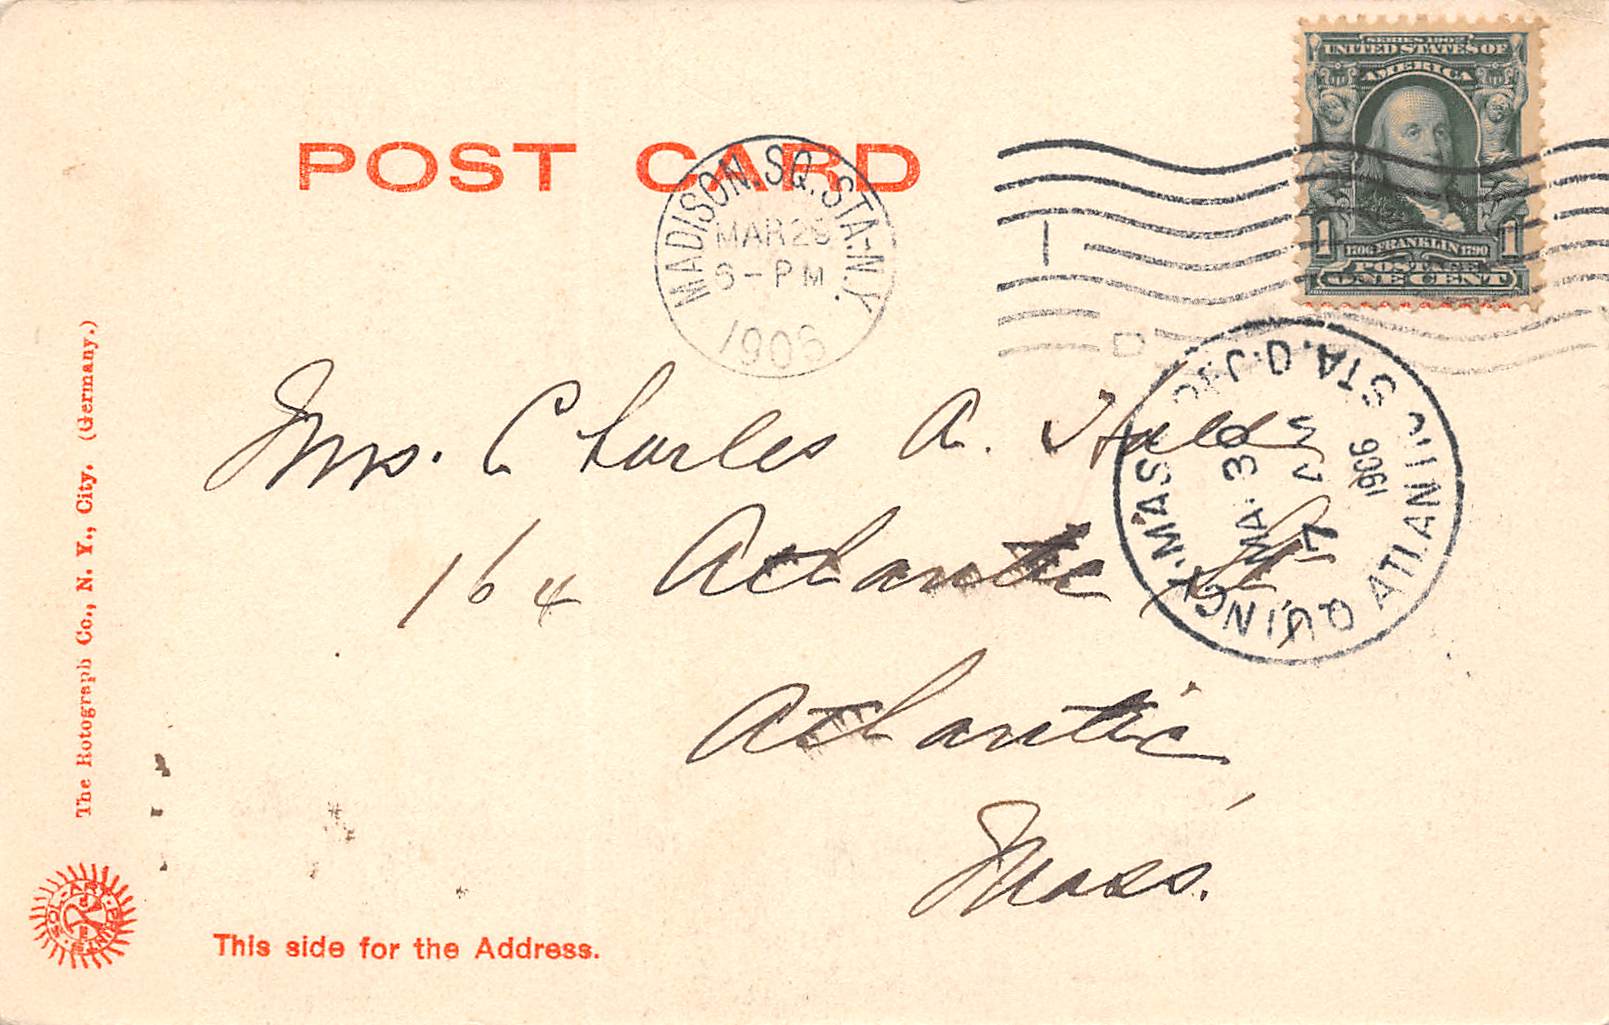 POST CARD
MADISON SQ. STA. N.Y.
MAR 29
6-PM
1906
SERIES 1902
UNITED STATES OF
AMERICA
1 1
1706 FRANKLIN 1790
POSTAGE
ONE CENT
1
D
QUINCY, MASS.
ATLANTIC STA.
MA. 30
7 AM
1906
Mrs. Charles A. Hall
164 Atlantic St
Atlantic,
Mass.
The Rotograph Co., N. Y., City. (Germany.)
SOL-ART PRINTS
This side for the Address.